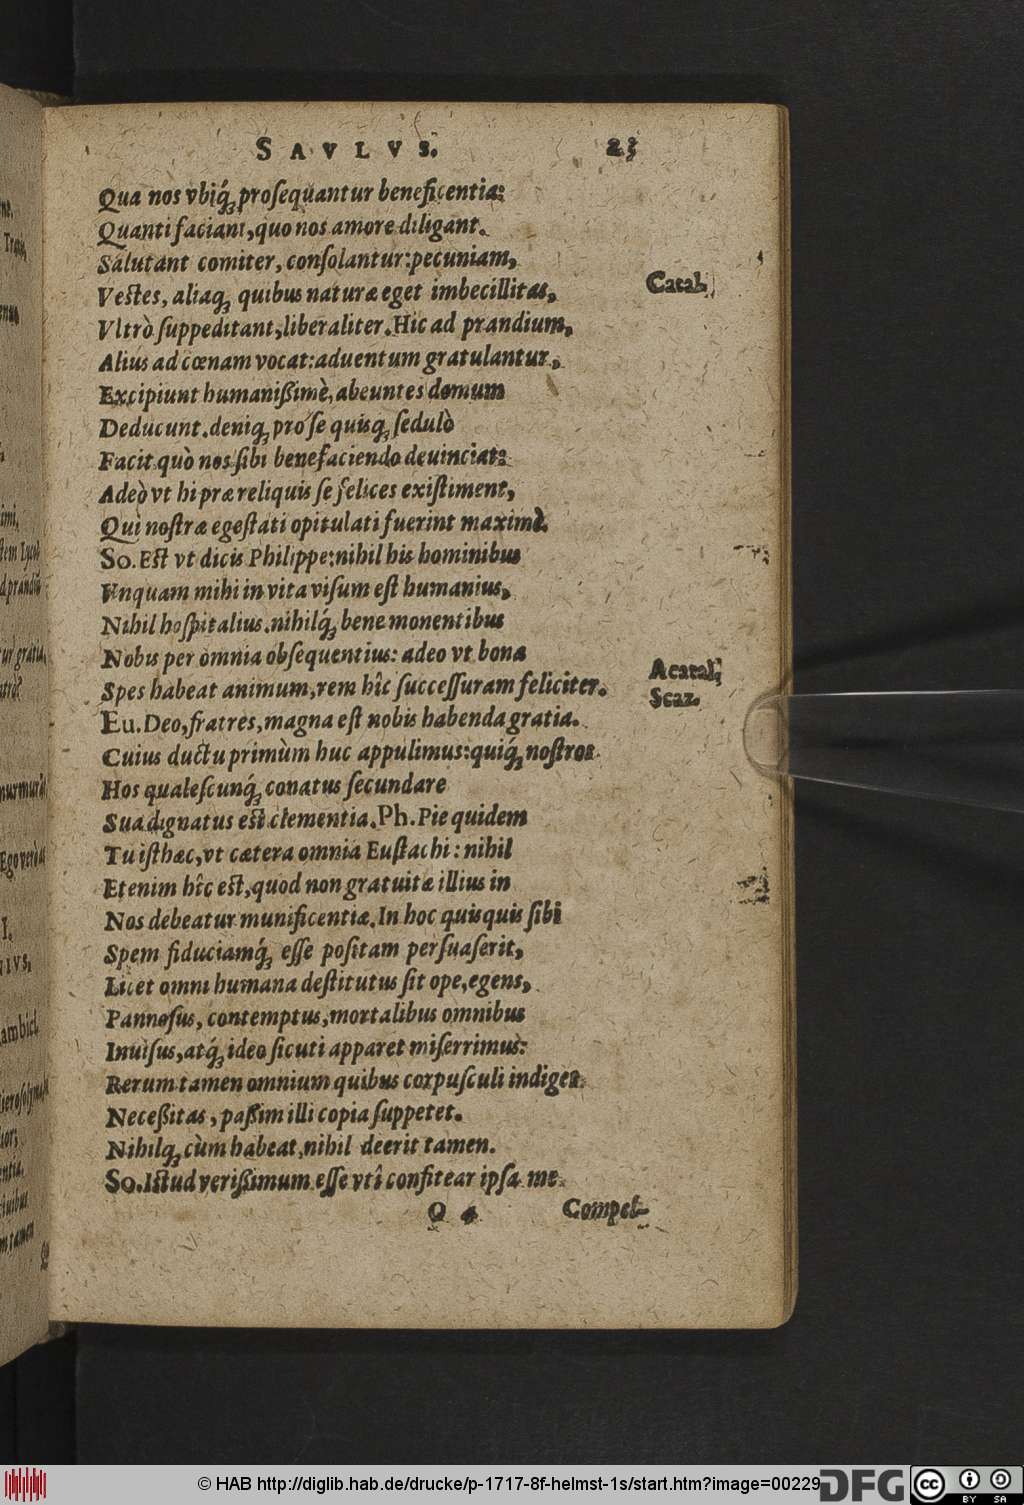 SAVLVS. 23
Qua nos vbiq́; proſequantur beneficentia:
Quanti faciant, quo nos amore diligant.
Salutant comiter, conſolantur: pecuniam,
Veſtes, aliaq; quibus naturæ eget imbecillitas, Catal.
Vltrò ſuppeditant, liberaliter. Hic ad prandium,
Alius ad cœnam vocat: aduentum gratulantur,
Excipiunt humanißimè, abeuntes domum
Deducunt. deniq; pro ſe quisq; ſedulò
Facit quò nos ſibi benefaciendo deuinciat:
Adeò vt hi præ reliquis ſe felices exiſtiment,
Qui noſtræ egeſtati opitulati fuerint maximè.
So. Eſt vt dicis Philippe: nihil his hominibus
Vnquam mihi in vita viſum eſt humanius,
Nihil hoſpitalius. nihilq́; bene monentibus
Nobis per omnia obſequentius: adeo vt bona Acatal.
Spes habeat animum, rem hîc ſucceſſuram feliciter. Scaz.
Eu. Deo, fratres, magna eſt nobis habenda gratia.
Cuius ductu primùm huc appulimus: quiq́; noſtros
Hos qualeſcunq́; conatus ſecundare
Sua dignatus eſt clementia. Ph. Pie quidem
Tu iſthæc, vt cætera omnia Euſtachi: nihil
Etenim hîc eſt, quod non gratuitæ illius in
Nos debeatur munificentiæ. In hoc quisquis ſibi
Spem fiduciamq́; eſſe poſitam perſuaſerit,
Licet omni humana deſtitutus ſit ope, egens,
Pannoſus, contemptus, mortalibus omnibus
Inuiſus, atq́; ideo ſicuti apparet miſerrimus:
Rerum tamen omnium quibus corpuſculi indiget
Neceßitas, paßim illi copia ſuppetet.
Nihilq; cùm habeat, nihil deerit tamen.
So. Iſtud verißimum eſſe vti confitear ipſa me
Q 4 Compel-
© HAB http://diglib.hab.de/drucke/p-1717-8f-helmst-1s/start.htm?image=00229
DFG
cc BY SA